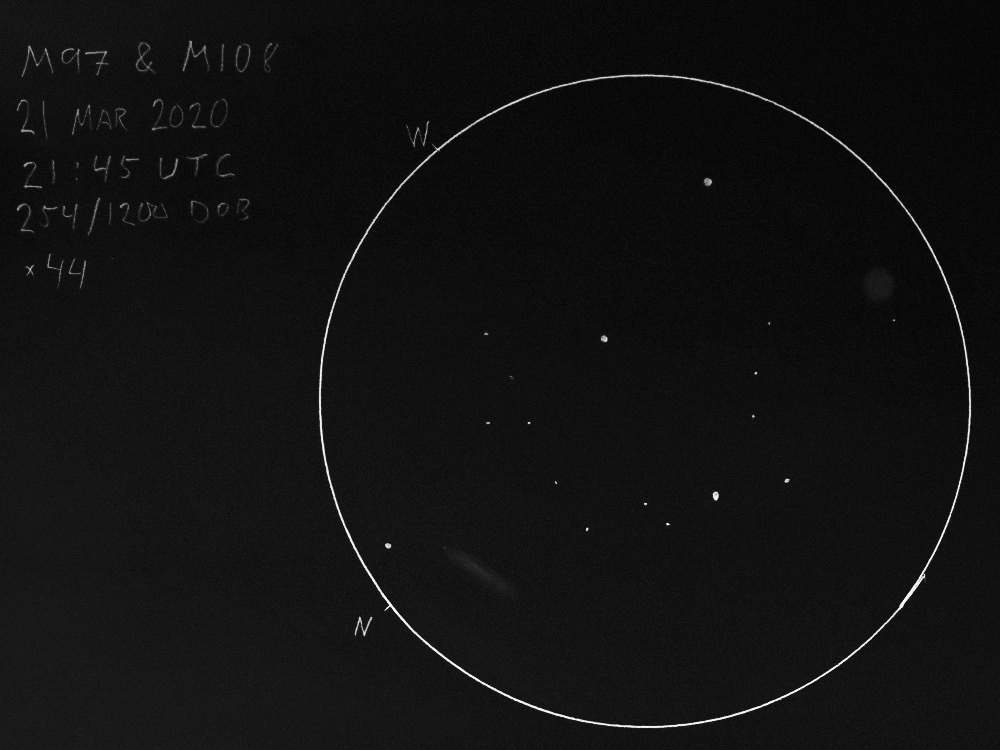 M97 & M108
21 MAR 2020
21:45 UTC
254/1200 DOB
×44
W
N